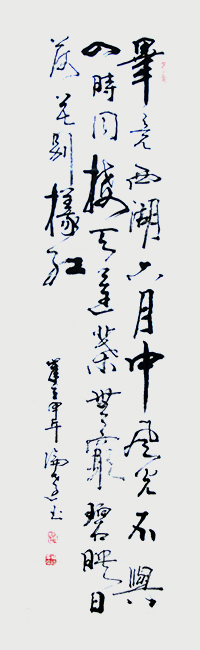 畢竟西湖六月中風光不與
四時同接天蓮葉無窮碧映日
荷花別樣紅